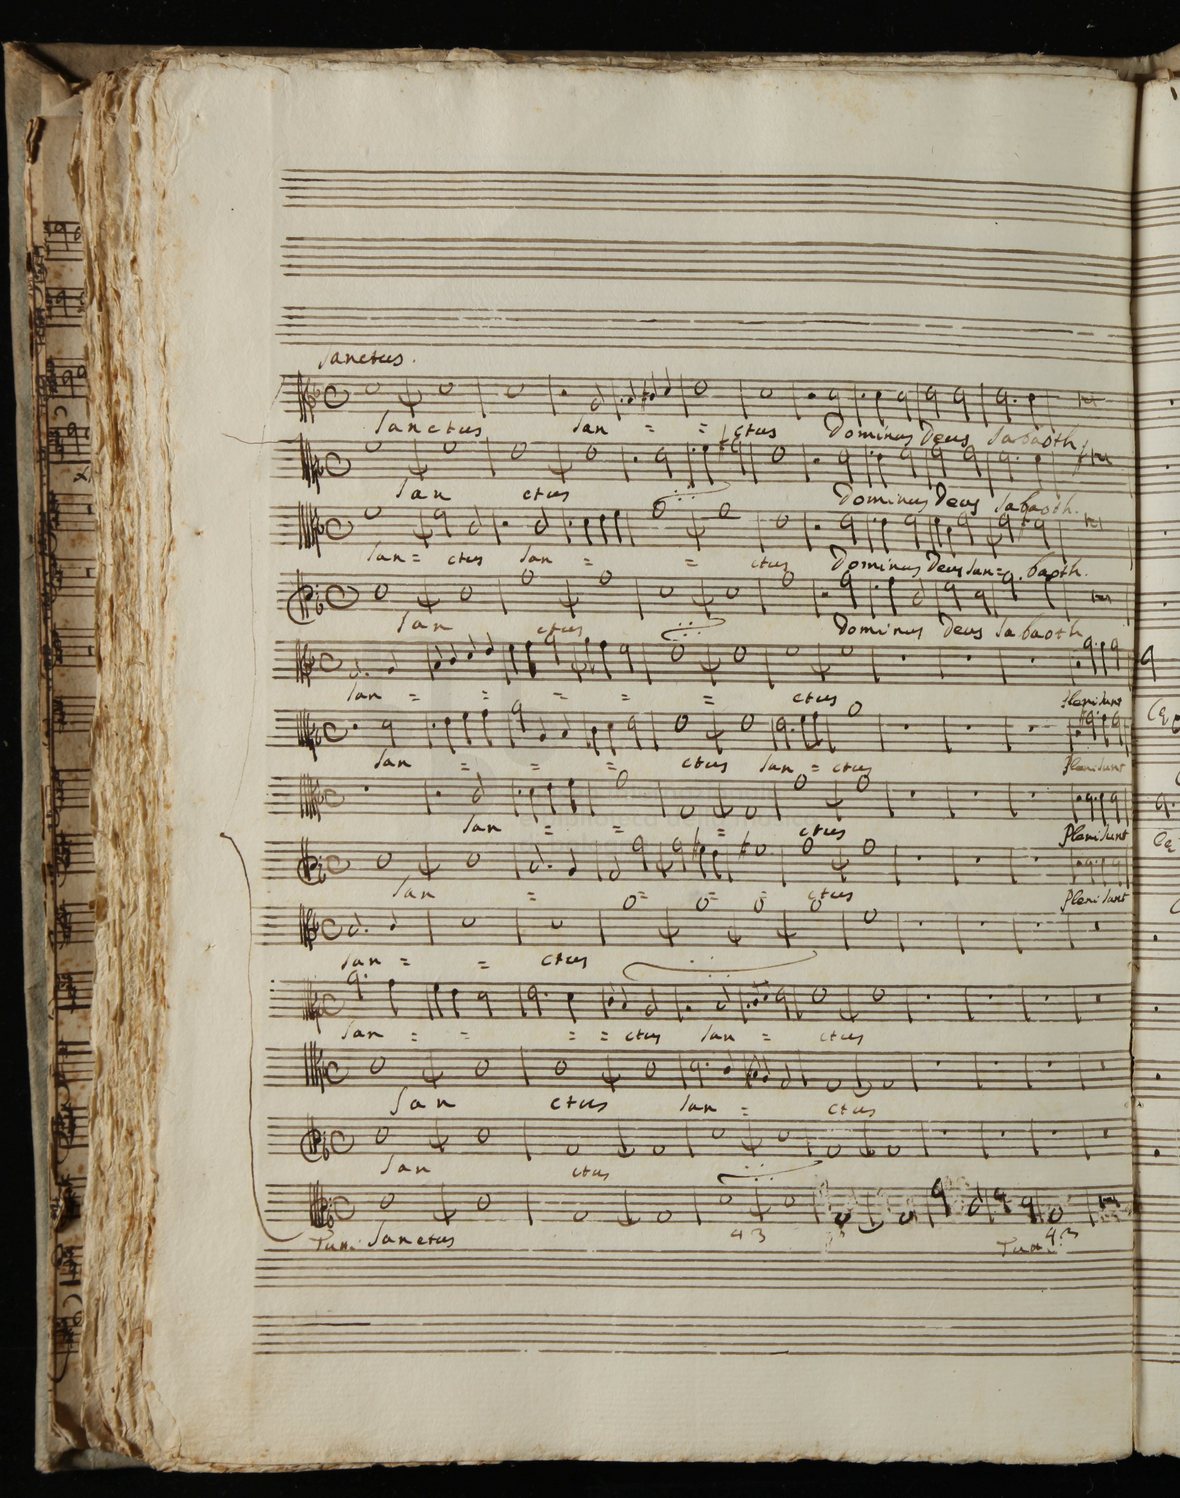 Sanctus.
Sanctus San = = ctus Dominus Deus Sabaoth
San ctus Dominus Deus Sabaoth.
San = ctus San = = ctus Dominus Deus San = baoth.
San ctus Dominus Deus Sabaoth
San = = = = = ctus Pleni sunt
San = = = ctus San = ctus Pleni sunt
San = = = ctus Pleni sunt
San = = = = ctus Pleni sunt
San = = ctus
San = = = = ctus San = ctus
San ctus San = ctus
San ctus
Sanctus 4 3 4 3